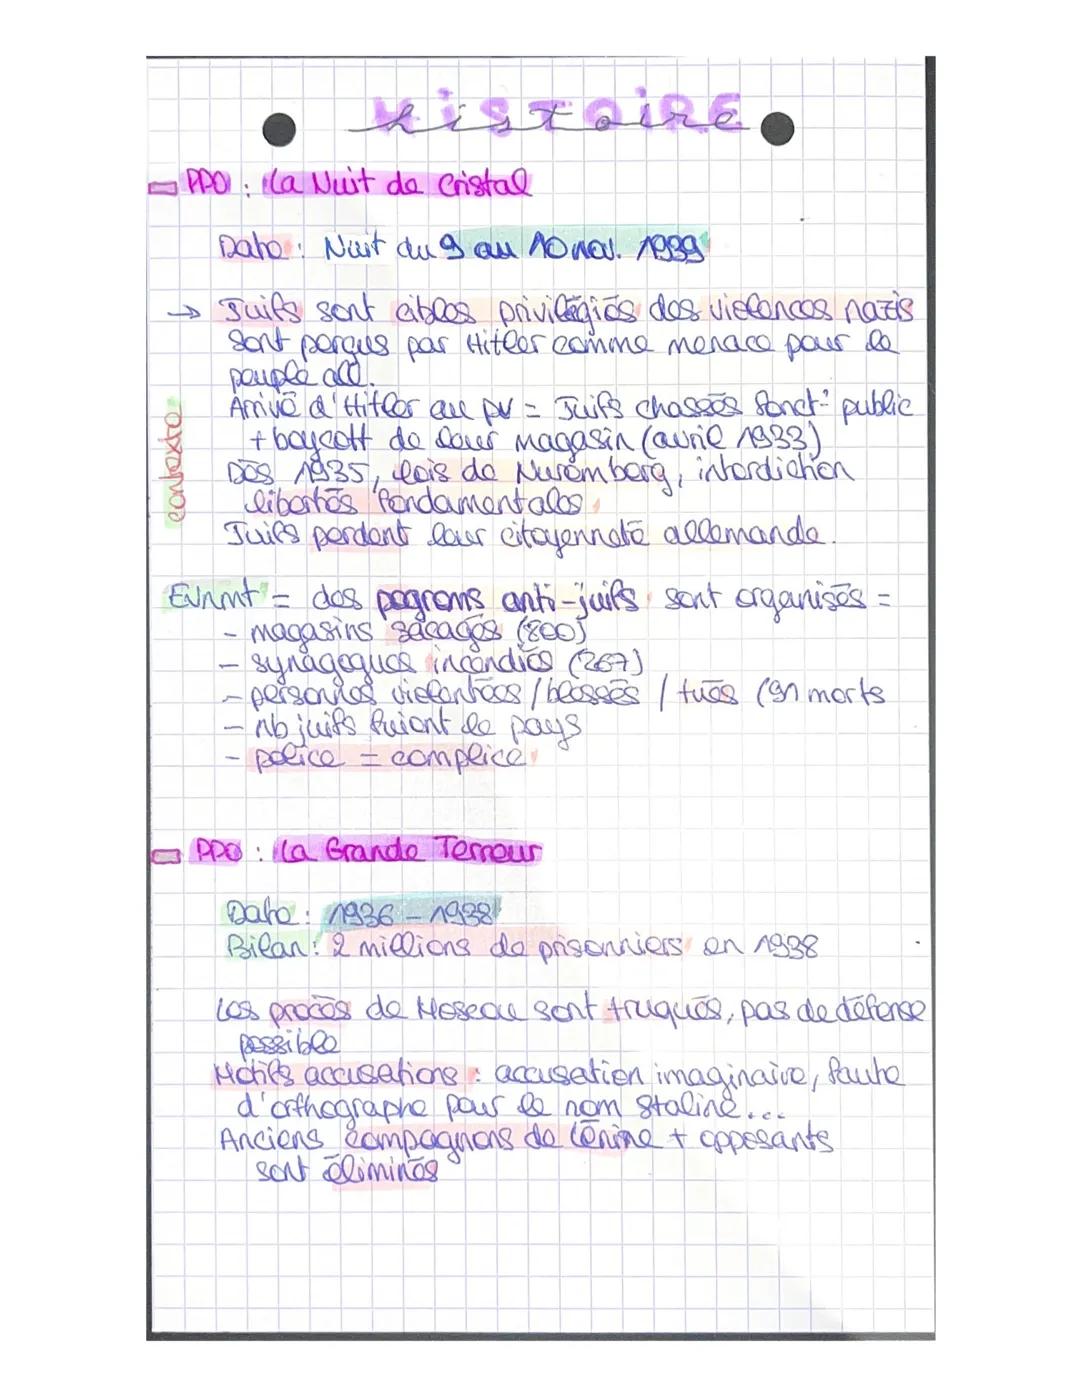 HISTOIRE
histoire
PPO : La Nuit de Cristal
Date : Nuit du 9 au 10 nov. 1939
→ Juifs sont cibles privilégiés des violences nazis
sont perçus par Hitler comme menace pour le
peuple all.
Arrivé d'Hitler au pv = Juifs chassés fonct° public
+ boycott de leur magasin (avril 1933)
Dès 1935, lois de Nuremberg, interdiction
libertés fondamentales
Juifs perdent leur citoyenneté allemande.
contexte
Evnmt = des pogroms anti-juifs sont organisés =
- magasins sacagés (800)
- synagogues incendiés (267)
- personnes violentées / blessés / tués (91 morts
- nb juifs fuient le pays
- police = complice
PPO : La Grande Terreur
Date : 1936 - 1938
Bilan : 2 millions de prisonniers en 1938
Les procès de Moscou sont truqués, pas de défense
possible
Motifs accusations : accusation imaginaire, faute
d'orthographe pour le nom Staline...
Anciens compagnons de Lénine + opposants
sont éliminés